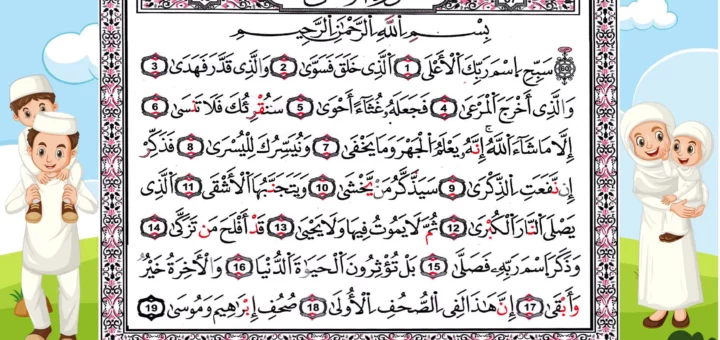 بِسْمِ اللَّهِ الرَّحْمَٰنِ الرَّحِيمِ
سَبِّحِ اسْمَ رَبِّكَ الْأَعْلَى 1 الَّذِي خَلَقَ فَسَوَّىٰ 2 وَالَّذِي قَدَّرَ فَهَدَىٰ 3
وَالَّذِي أَخْرَجَ الْمَرْعَىٰ 4 فَجَعَلَهُ غُثَاءً أَحْوَىٰ 5 سَنُقْرِئُكَ فَلَا تَنسَىٰ 6
إِلَّا مَا شَاءَ اللَّهُ ۚ إِنَّهُ يَعْلَمُ الْجَهْرَ وَمَا يَخْفَىٰ 7 وَنُيَسِّرُكَ لِلْيُسْرَىٰ 8 فَذَكِّرْ
إِن نَّفَعَتِ الذِّكْرَىٰ 9 سَيَذَّكَّرُ مَن يَخْشَىٰ 10 وَيَتَجَنَّبُهَا الْأَشْقَى 11 الَّذِي
يَصْلَى النَّارَ الْكُبْرَىٰ 12 ثُمَّ لَا يَمُوتُ فِيهَا وَلَا يَحْيَىٰ 13 قَدْ أَفْلَحَ مَن تَزَكَّىٰ 14
وَذَكَرَ اسْمَ رَبِّهِ فَصَلَّىٰ 15 بَلْ تُؤْثِرُونَ الْحَيَاةَ الدُّنْيَا 16 وَالْآخِرَةُ خَيْرٌ
وَأَبْقَىٰ 17 إِنَّ هَٰذَا لَفِي الصُّحُفِ الْأُولَىٰ 18 صُحُفِ إِبْرَاهِيمَ وَمُوسَىٰ 19